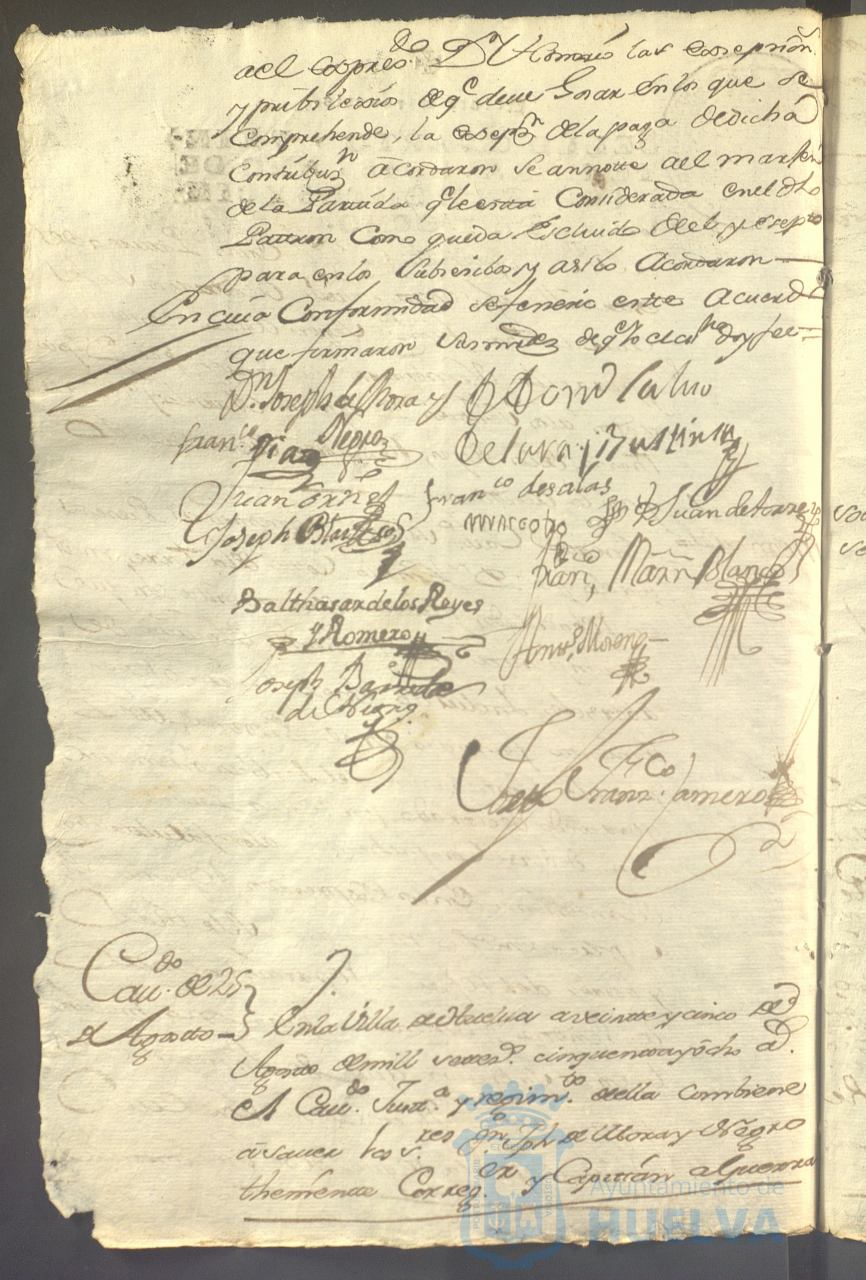 del expres.do Dn Antonio las essepsiõn.
y pribilexios de q.e deve Gosar en los que se
Comprehende, la esep.n de la paga de dicha
Contribuz.n acordaron se annotte al marxen
de la Partida q.e le está Considerada en el dho
Patron Como queda Escluido de el y esepto
para en los Subsesibos y asi lo Acordaron
En cuia Conformidad se fenecio este Acuerdo
que firmaron sus mrdes de q.e yo el es.no doy fee=
Dn Joseph de Mora y
Negro
D Dom.o Calvo
de Lara y
Fran.co Diaz
Juan
Fran.co de salas
Joseph
Juan de torres
Fran.co Marñ Blanco
Balthasar de los Reyes
y Romero
Ant.o Moreno
Joseph
Joseph Franz.co Camero
Cau.do de 25
de Agosto
En la Villa de Huelva a veinte y cinco de
Agosto de mill setez.s cinquenta y ocho a.s
el Cau.do Just.a y regim.to de ella combiene
a saver los s.res Dn Jph de Mora y Negro
theniente Correg.or y Capitán a Guerra
Ayuntamiento de
HUELVA